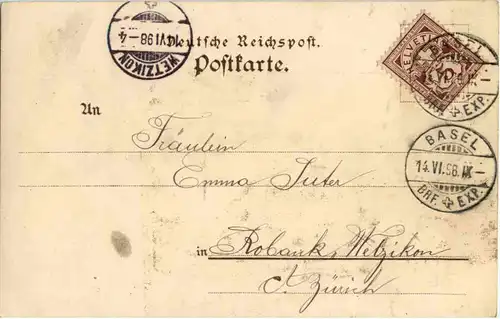 WETZIKON
VI.98-4
Deutsche Reichspost.
Postkarte.
HELVETIA
EXP.
BASEL
14.VI.98.IX-
BRF. EXP.
An
Fräulein
Emma Suter
in Robank, Wetzikon
Ct. Zürich